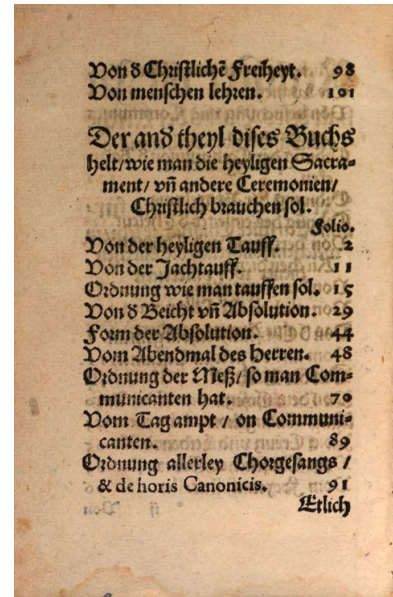 Von d Christlichē Freiheyt. 98
Von menschen lehren. 101
Der and theyl dises Buchs
helt/wie man die heyligen Sacra⸗
ment/ vñ andere Ceremonien/
Christlich brauchen sol.
Folio.
Von der heyligen Tauff. 2
Von der Jachtauff. 11
Ordnung wie man tauffen sol. 15
Von d Beicht vñ Absolution. 29
Form der Absolution. 44
Vom Abendmal des Herren. 48
Ordnung der Meß/ so man Com⸗
municanten hat. 70
Vom Tag ampt / on Communi⸗
canten. 89
Ordnung allerley Chorgesangs /
& de horis Canonicis. 91
Etlich